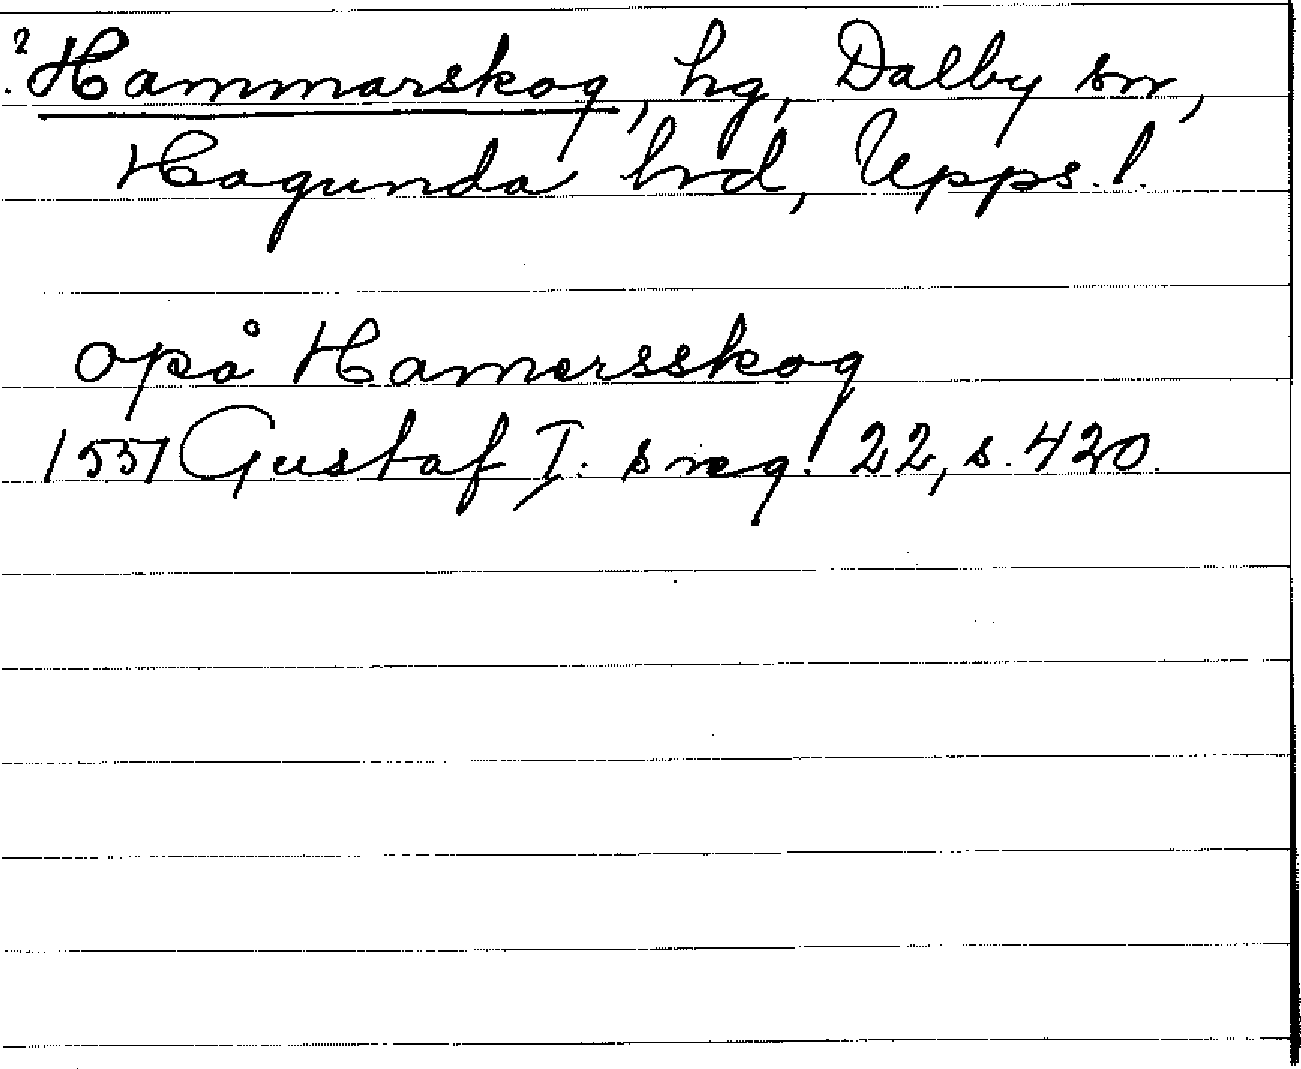 ? Hammarskog, hg, Dalby sn,
Hagunda hrd, Upps. l.
opå Hamersskog
1551 Gustaf I: s reg. 22, s. 420.